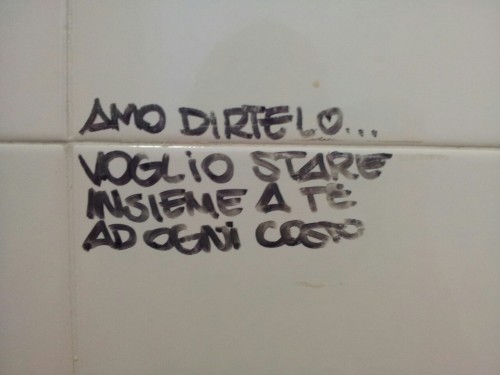 AMO DIRTELO...
VOGLIO STARE
INSIEME A TE
AD OGNI COSTO